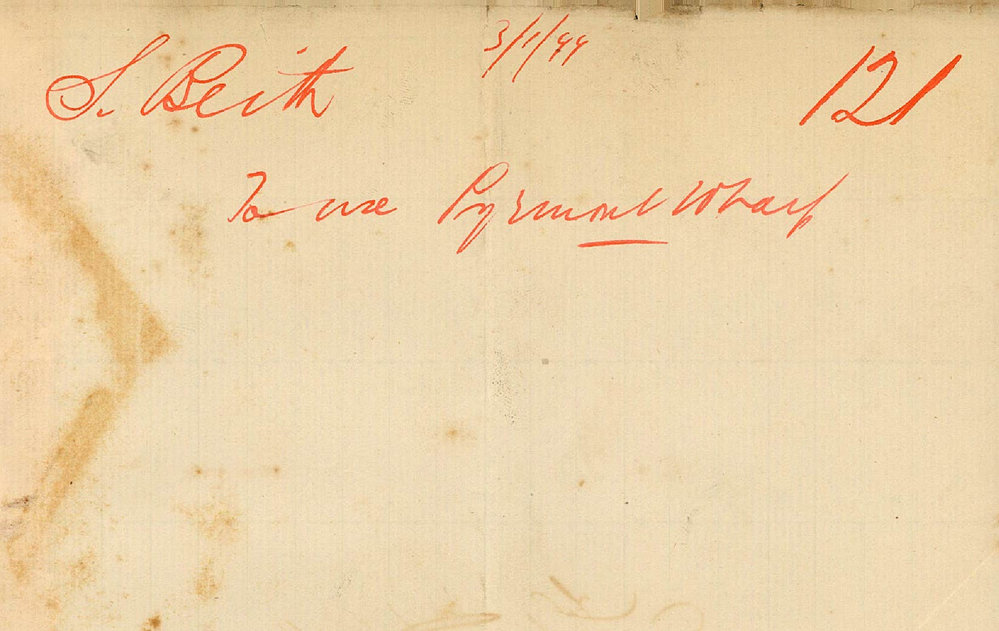 3/1/99
S. Beith 121
To use Pyrmont Wharf